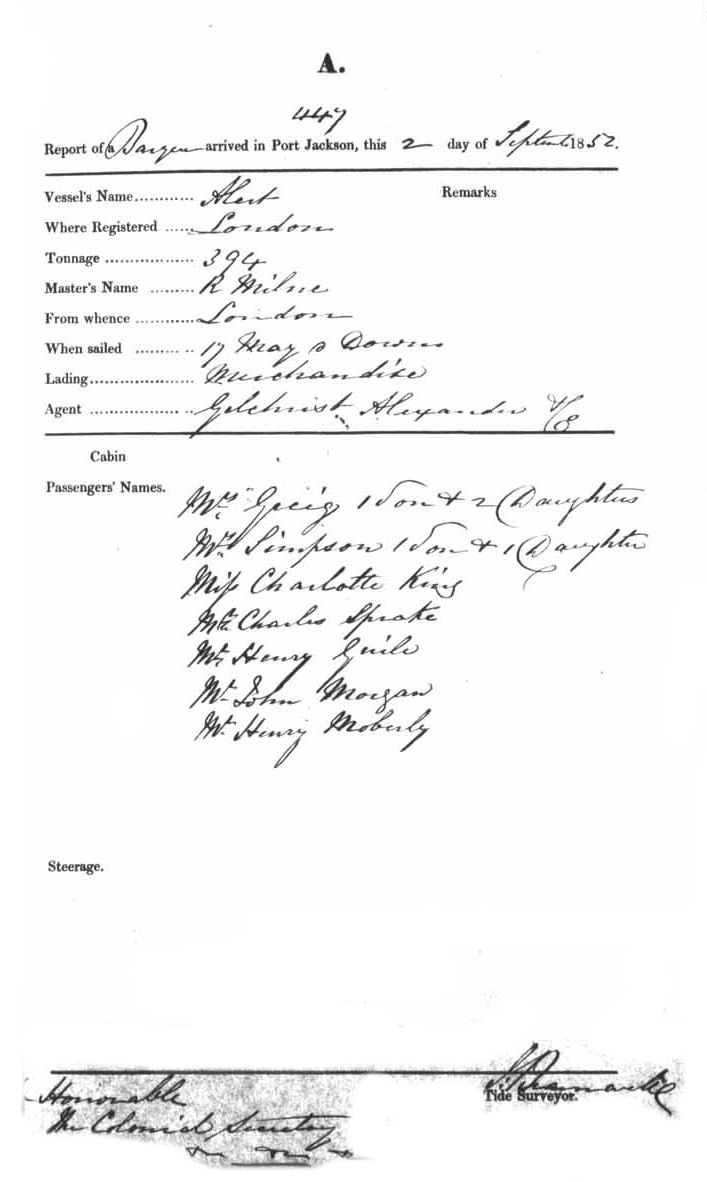 A.
447
Report of a Barque arrived in Port Jackson, this 2 day of Septemb 1852.
Vessel's Name............ Alert Remarks
Where Registered ...... London
Tonnage .................. 394
Master's Name ......... R Milne
From whence ............ London
When sailed ......... .. 17 May Downs
Lading..................... Merchandise
Agent ................. .. Gilchrist Alexander & Co
Cabin
Passengers' Names.
Mrs Greig 1 Son & 2 Daughters
Mrs Simpson 1 Son & 1 Daughter
Miss Charlotte King
Mr Charles Sprake
Mr Henry Guile
Mr John Morgan
Mr Henry Moberly
Steerage.
Tide Surveyor.
Honorable
The Colonial Secretary